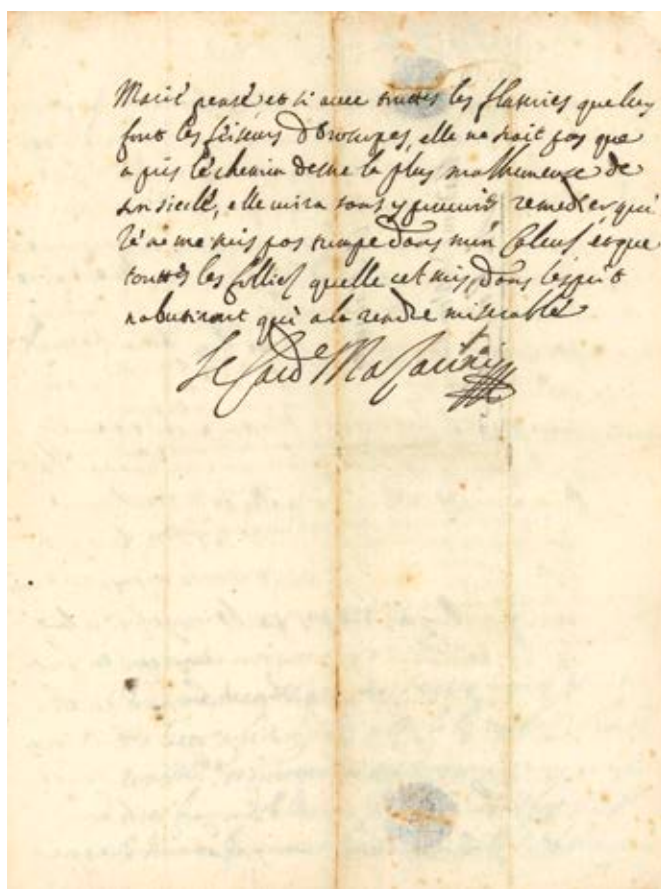 Marie pense et si avec touttes les flatteries que luy
font les faiseurs d'horoscopes, elle ne croit pas que
a pris le chemin destre la plus malheureuse de
son siecle, elle verra sans y pouvoir remedier qui
ie ne me suis pas trompé dans mon calcul et que
touttes les follies quelle cet mis dans lesprit
nabutiront qui a la rendre miserable
Le Card^e Mazarini